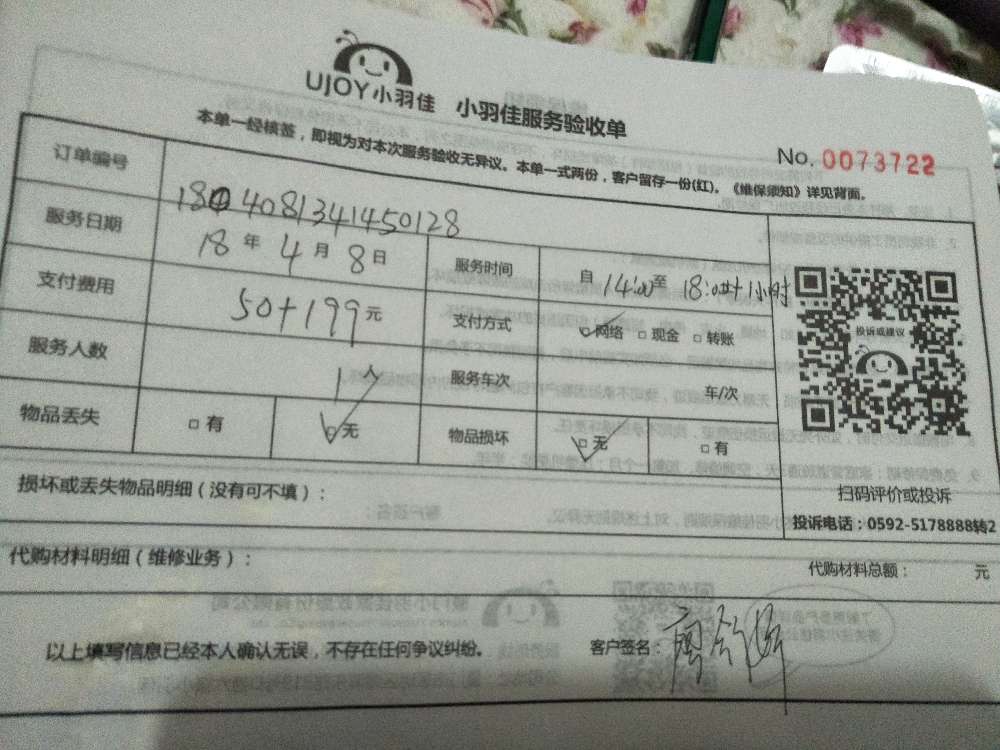 UJOY小羽佳 小羽佳服务验收单
No. 0073722
本单一经核签，即视为对本次服务验收无异议。本单一式两份，客户留存一份(红)。《维保须知》详见背面。
订单编号 1804081341450128
服务日期 18 年 4 月 8 日 服务时间 自 14:00 至 18:00+1小时
支付费用 50+199 元 支付方式 网络 现金 转账
服务人数 1 人 服务车次 车/次
物品丢失 有 无 物品损坏 无 有
投诉或建议
扫码评价或投诉
投诉电话：0592-5178888转2
损坏或丢失物品明细（没有可不填）：
代购材料明细（维修业务）： 代购材料总额： 元
以上填写信息已经本人确认无误，不存在任何争议纠纷。 客户签名：